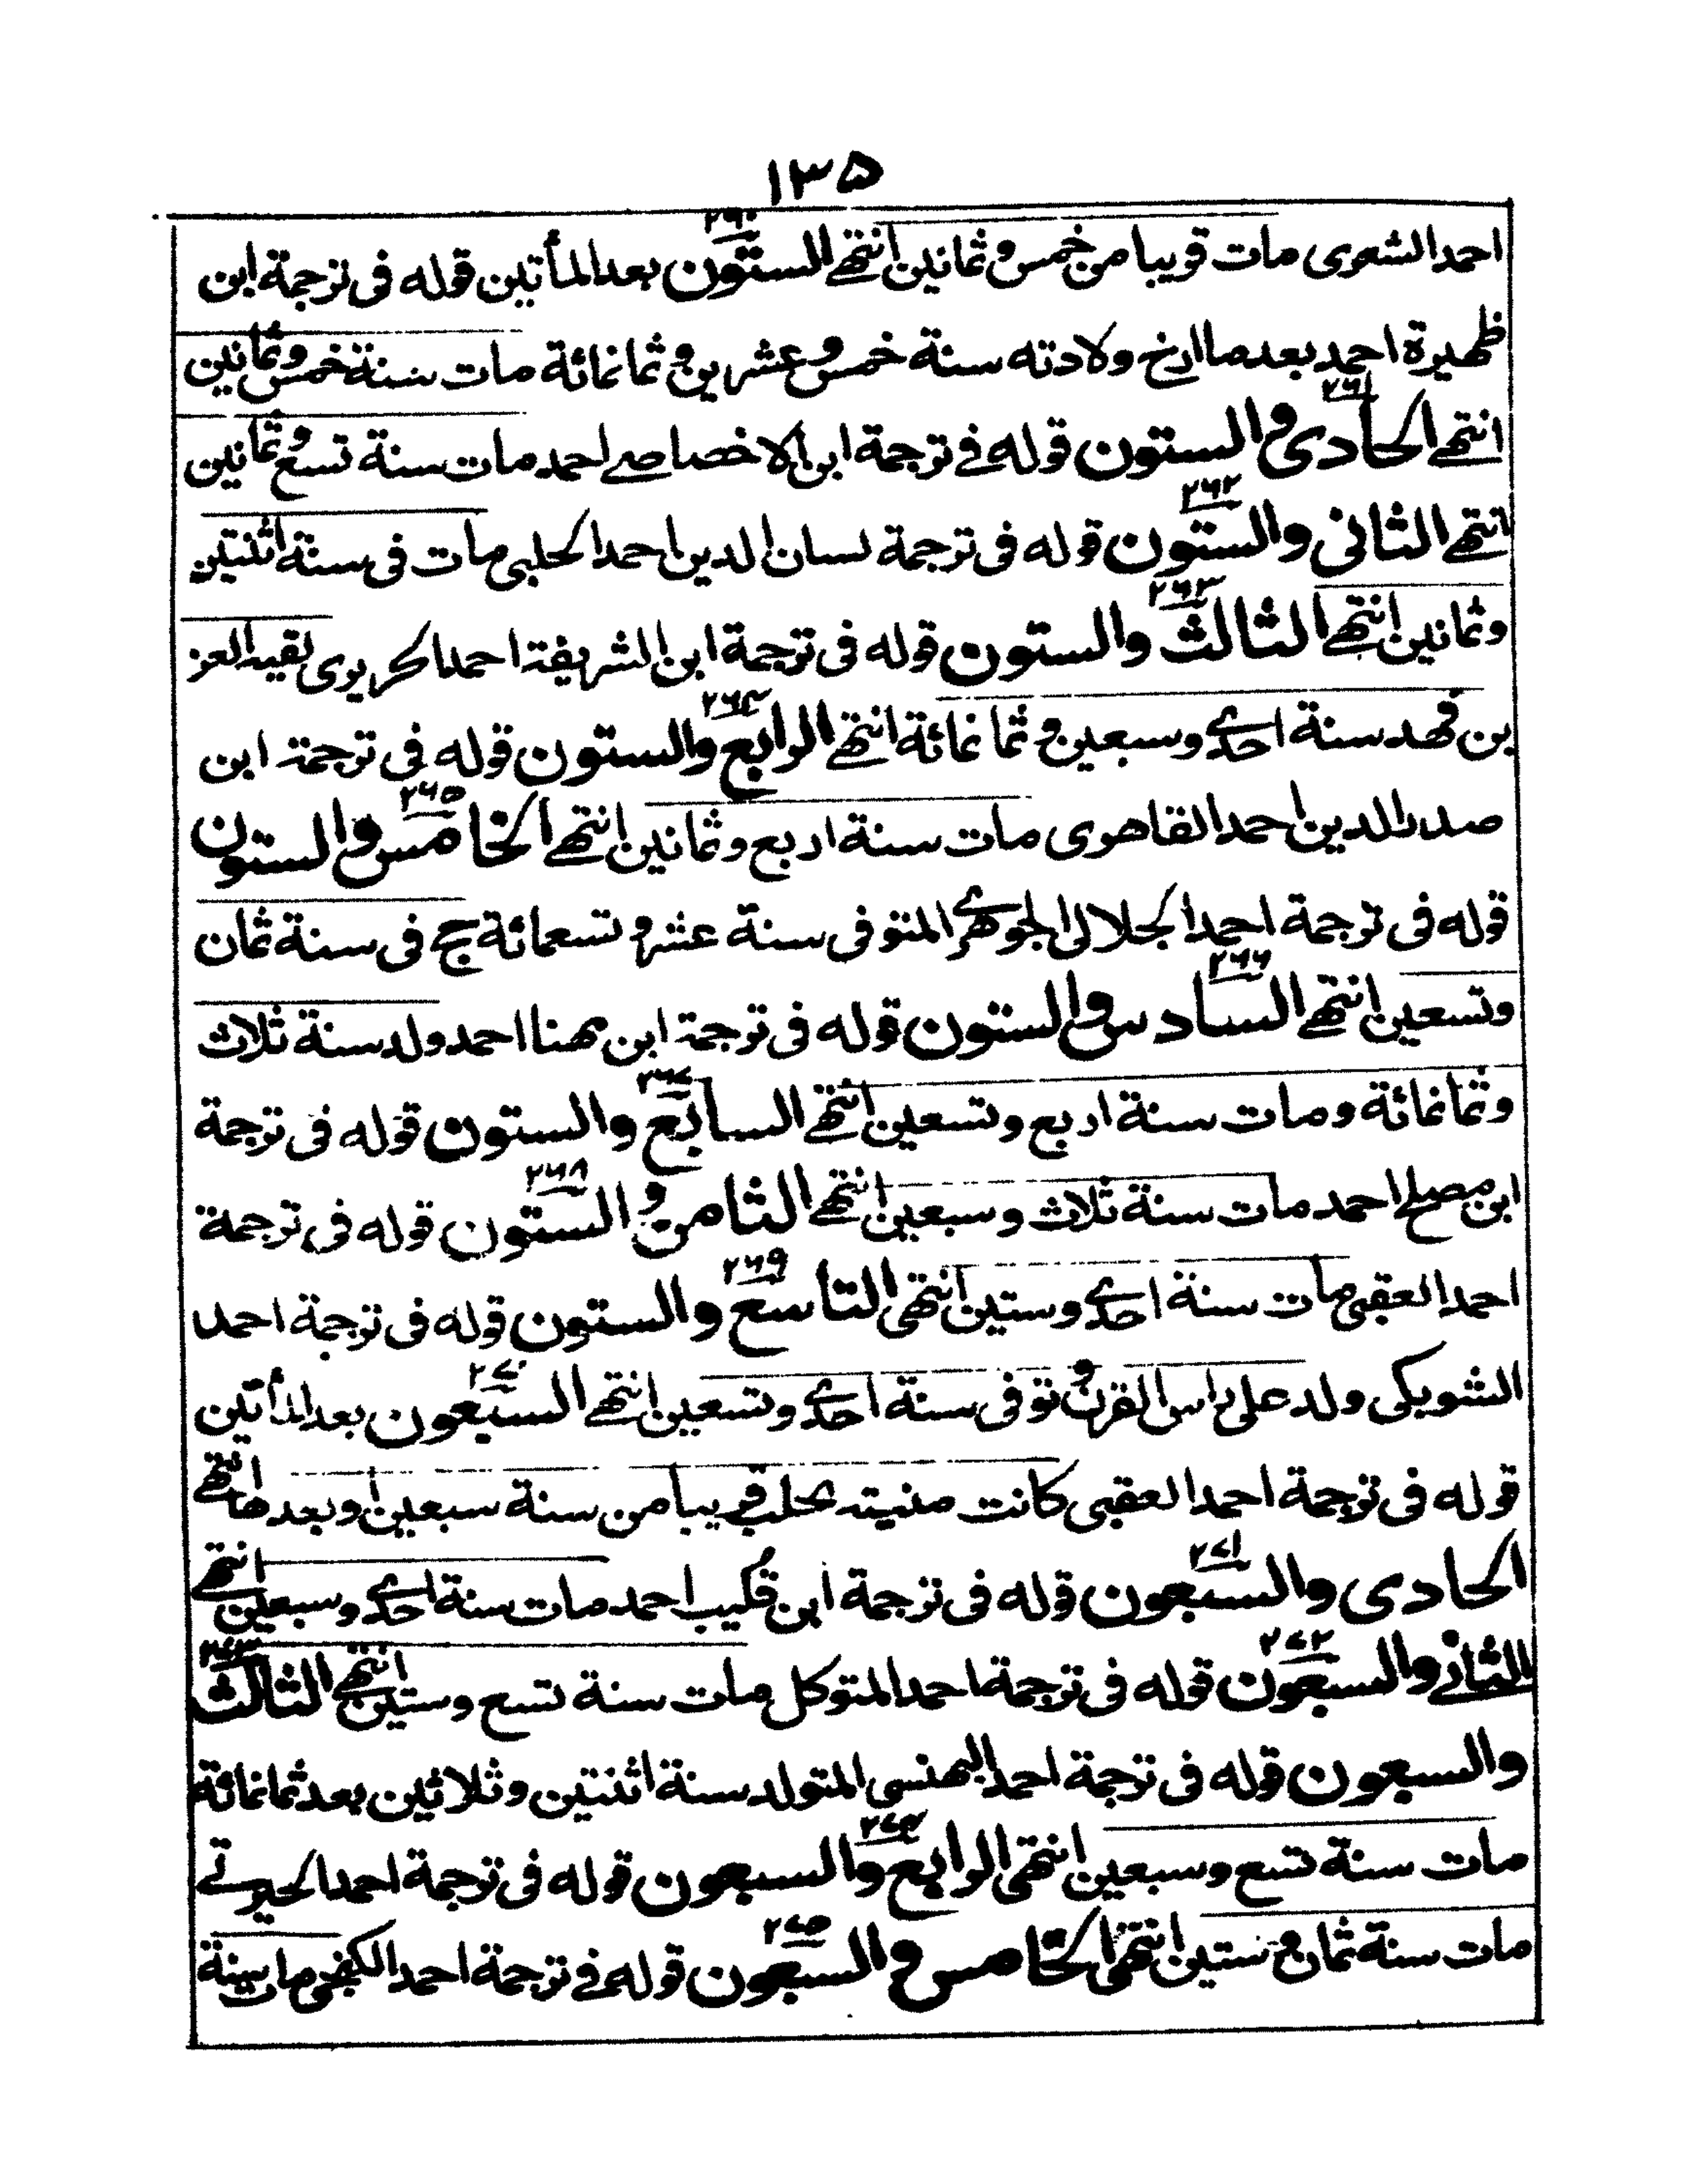 ١٣٥
٢٦٠
احمد الشعرى مات قريبا من خمس وثمانين انتهى الستون بعد المأتين قوله فى ترجمة ابن
ظهيرة احمد بعد ما ارخ ولادته سنة خمس وعشرين وثمانمائة مات سنة خمس وثمانين
٢٦١
انتهى الحادى والستون قوله فى ترجمة ابن الاخصاصى احمد مات سنة تسع وثمانين
٢٦٢
انتهى الثانى والستون قوله فى ترجمة لسان الدين احمد الحلبى مات فى سنة اثنتين
٢٦٣
وثمانين انتهى الثالث والستون قوله فى ترجمة ابن الشريفة احمد لقيه العز
٢٦٤
بن فهد سنة احدى وسبعين وثمانمائة انتهى الرابع والستون قوله فى ترجمة ابن
٢٦٥
صدر الدين احمد القاهرى مات سنة اربع وثمانين انتهى الخامس والستون
قوله فى ترجمة احمد الجلالى الجوهرى المتوفى سنة عشر وتسعمائة حج فى سنة ثمان
٢٦٦
وتسعين انتهى السادس والستون قوله فى ترجمة ابن مهنا احمد ولد سنة ثلاث
٢٦٧
وثمانمائة ومات سنة اربع وتسعين انتهى السابع والستون قوله فى ترجمة
٢٦٨
ابن مصلح احمد مات سنة ثلاث وسبعين انتهى الثامن والستون قوله فى ترجمة
٢٦٩
احمد العقبى مات سنة احدى وستين انتهى التاسع والستون قوله فى ترجمة احمد
٢٧٠
الشويكى ولد على راس القرن وتوفى سنة احدى وتسعين انتهى السبعون بعد المأتين
قوله فى ترجمة احمد العقبى كانت منيته بحلب قريبا من سنة سبعين او بعدها انتهى
٢٧١
الحادى والسبعون قوله فى ترجمة ابن قليب احمد مات سنة احدى وسبعين انتهى
٢٧٢ ٢٧٣
الثانى والسبعون قوله فى ترجمة احمد المتوكل مات سنة تسع وستين انتهى الثالث
والسبعون قوله فى ترجمة احمد البهنسى المتولد سنة اثنتين وثلاثين بعد ثمانمائة
٢٧٤
مات سنة تسع وسبعين انتهى الرابع والسبعون قوله فى ترجمة احمد الحيرتى
٢٧٥
مات سنة ثمان وستين انتهى الخامس والسبعون قوله فى ترجمة احمد مات سنة